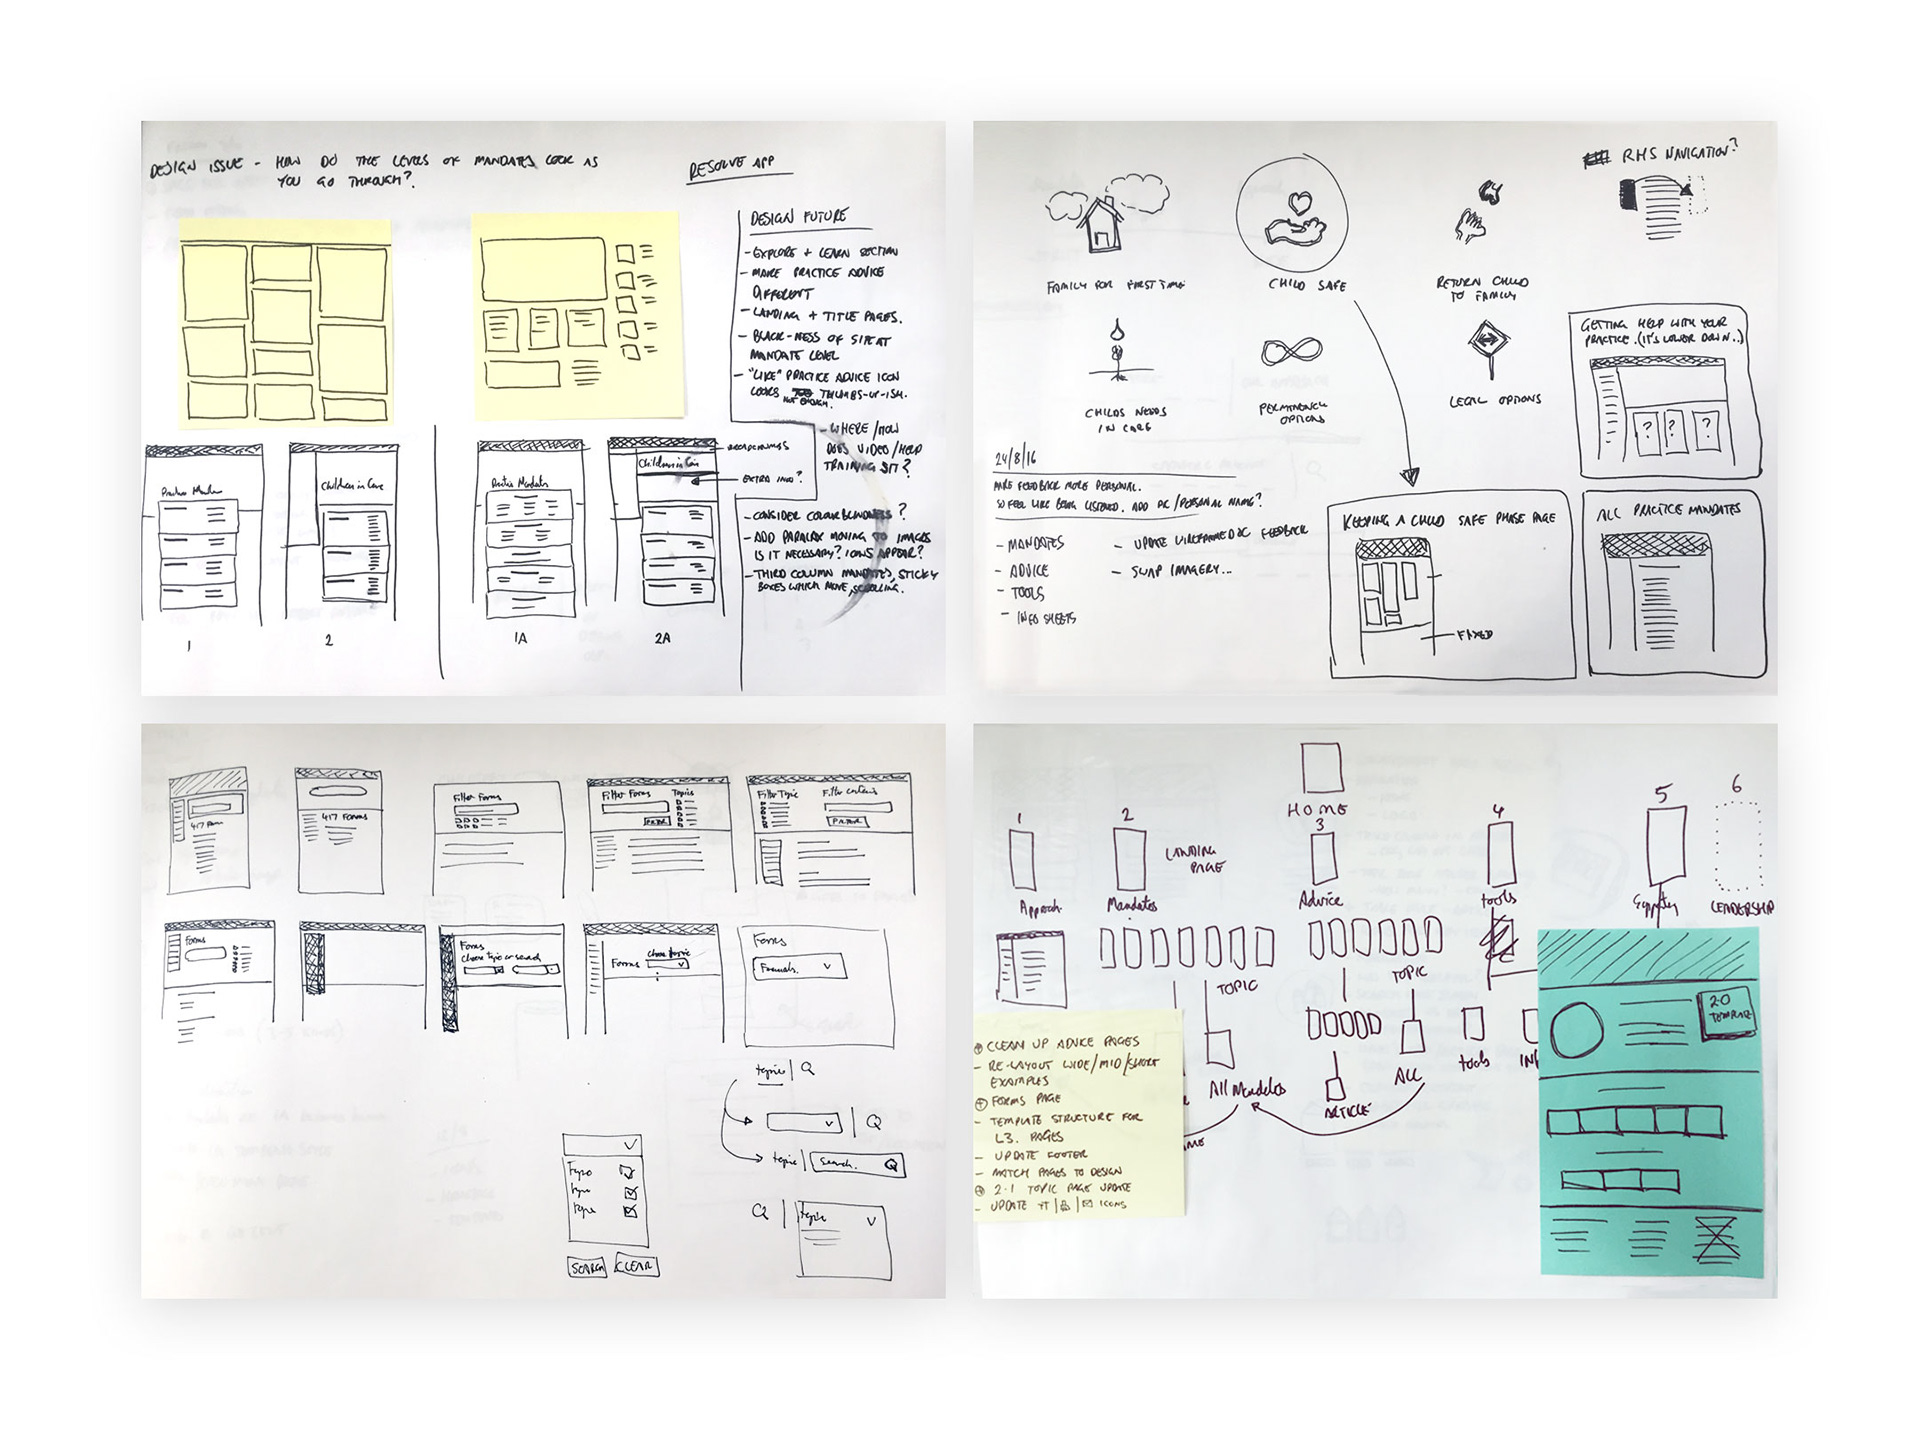 DESIGN ISSUE - HOW DO THE LEVELS OF MANDATES LOOK AS
YOU GO THROUGH?
RESOLVE APP
DESIGN FUTURE
- EXPLORE + LEARN SECTION
- MAKE PRACTICE ADVICE
DIFFERENT
- LANDING + TITLE PAGES.
- BLACK-NESS OF SITE AT
MANDATE LEVEL
- "LIKE" PRACTICE ADVICE ICON
LOOKS THUMBS-UP-ISH.
NOT ENOUGH.
- WHERE/HOW
DOES VIDEO/HELP
TRAINING SIT?
- CONSIDER COLOURBLINDNESS?
- ADD PARALAX MOVING TO IMAGES
IS IT NECESSARY? ICONS APPEAR?
- THIRD COLUMN MANDATES, STICKY
BOXES WHICH MOVE, SCROLLING.
Children in Care
Practice Mandates
Children in Care
BREADCRUMBS
EXTRA INFO?
1
2
1A
2A
RHS NAVIGATION?
FAMILY FOR FIRST TIME
CHILD SAFE
RETURN CHILD
TO FAMILY
CHILDS NEEDS
IN CARE
PERMANENCY
OPTIONS
LEGAL OPTIONS
GETTING HELP WITH YOUR
PRACTICE. (IT'S LOWER DOWN..)
? ? ?
24/8/16
MAKE FEEDBACK MORE PERSONAL.
SO FEEL LIKE BEING LISTENED. ADD PIC/PERSONAL NAME?
- MANDATES
- ADVICE
- TOOLS
- INFO SHEETS
- UPDATE WIREFRAMED FEEDBACK
- SWAP IMAGERY...
KEEPING A CHILD SAFE PHASE PAGE
FIXED
ALL PRACTICE MANDATES
417 Forms
417 Forms
Filter Forms
Filter Forms
Topics
FILTER
Filter Topic
Filter
FILTER
Forms
Forms
Choose topic or search
Forms
Choose topic
Forms
topic | Q
| Q
topic | Search. Q
Q | topic
Type
Type
Type
SEARCH
CLEAR
HOME
1
2
3
4
5
6
LANDING
PAGE
Approach
Mandates
Advice
tools
LEADERSHIP
TOPIC
TOPIC
All Mandates
ARTICLE
ALL
tools
2.0
TEMPLATE
CLEAN UP ADVICE PAGES
- RE-LAYOUT WIDE/MID/SHORT
EXAMPLES
FORMS PAGE
- TEMPLATE STRUCTURE FOR
L3. PAGES
- UPDATE FOOTER
- MATCH PAGES TO DESIGN
2.1 TOPIC PAGE UPDATE
- UPDATE YT | | ICONS